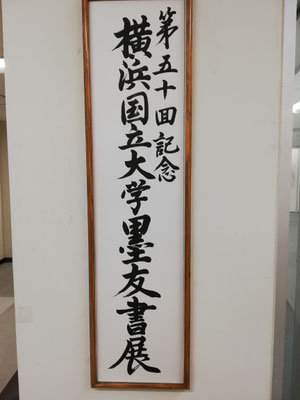 第五十回記念
横浜国立大学墨友書展